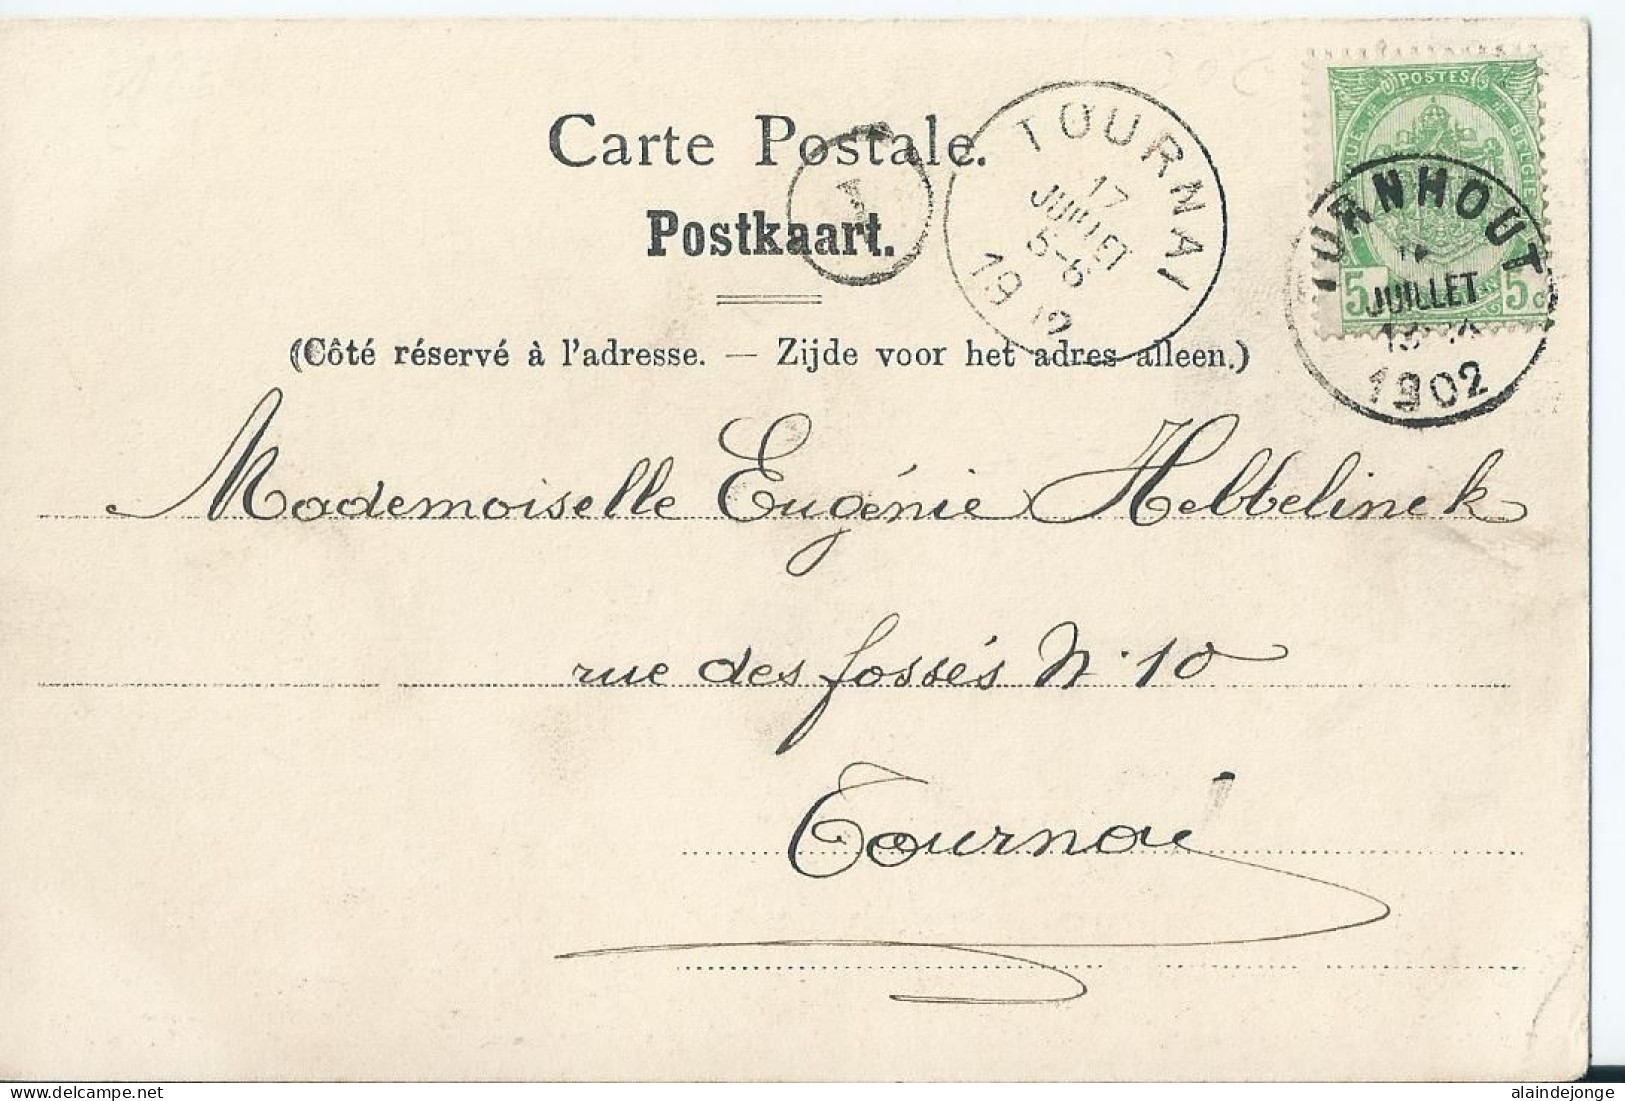 Carte Postale.
Postkaart.
(Côté réservé à l'adresse. — Zijde voor het adres alleen.)
TOURNAI
17
JUILLET
5-6
19 2
1
POSTES
BELGIE
5 5c
TURNHOUT
JUILLET
1902
Mademoiselle Eugénie Hebbelinck
rue des fossés N° 10
Tournai
alaindejonge